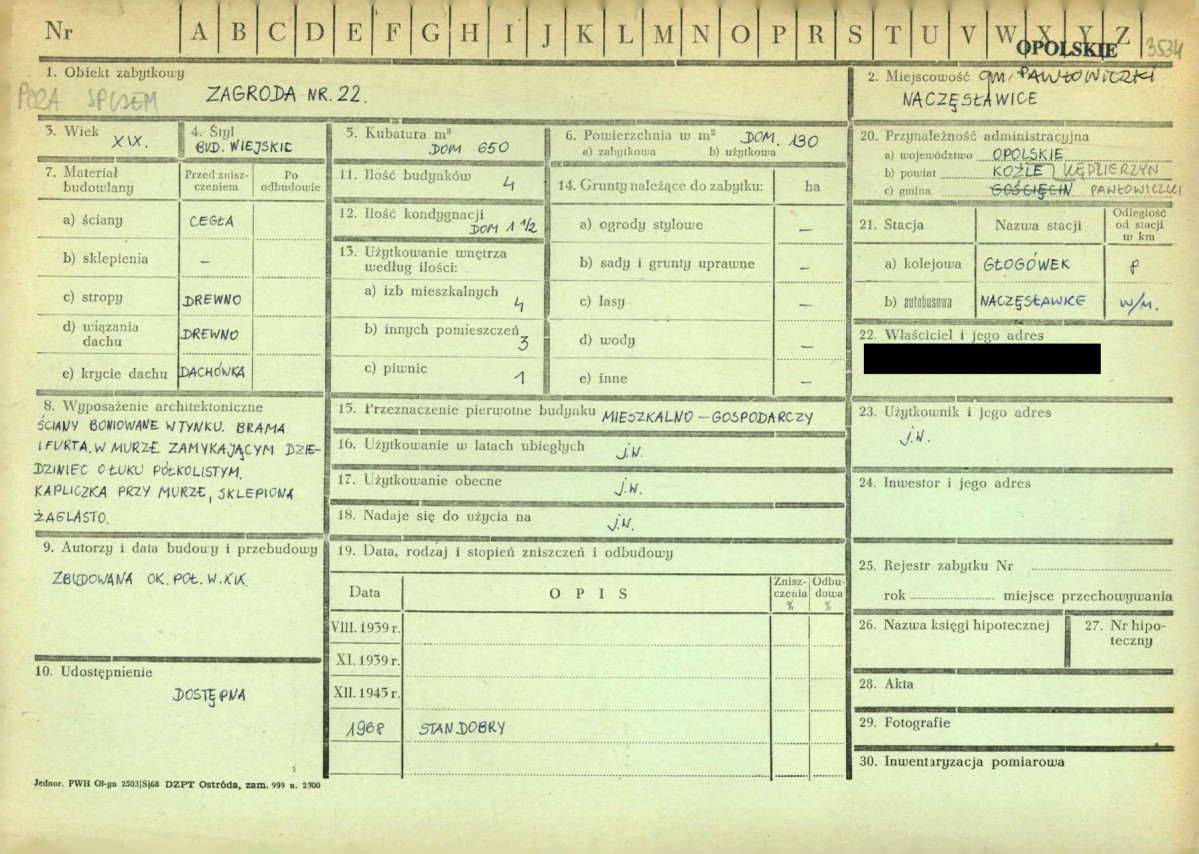 Nr A B C D E F G H I J K L M N O P R S T U V W X Y Z
OPOLSKIE 3534
1. Obiekt zabytkowy
POZA SPISEM
ZAGRODA NR. 22.
2. Miejscowość gm. PAWŁOWICZKI
NACZĘSŁAWICE
3. Wiek
XIX.
4. Styl
BUD. WIEJSKIE
5. Kubatura m³
DOM 650
6. Powierzchnia w m² DOM. 130
a) zabytkowa b) użytkowa
7. Materiał budowlany
Przed zniszczeniem
Po odbudowie
a) ściany CEGŁA
b) sklepienia –
c) stropy DREWNO
d) wiązania dachu DREWNO
e) krycie dachu DACHÓWKA
8. Wyposażenie architektoniczne
ŚCIANY BONIOWANE W TYNKU. BRAMA
I FURTA. W MURZE ZAMYKAJĄCYM DZIE-
DZINIEC O ŁUKU PÓŁKOLISTYM.
KAPLICZKA PRZY MURZE, SKLEPIONA
ŻAGLASTO.
9. Autorzy i data budowy i przebudowy
ZBUDOWANA OK. POŁ. W. XIX.
10. Udostępnienie
DOSTĘPNA
11. Ilość budynków 4
12. Ilość kondygnacji
DOM 1 1/2
13. Użytkowanie wnętrza
według ilości:
a) izb mieszkalnych 4
b) innych pomieszczeń 3
c) piwnic 1
14. Grunty należące do zabytku: ha
a) ogrody stylowe –
b) sady i grunty uprawne –
c) lasy –
d) wody –
e) inne –
15. Przeznaczenie pierwotne budynku MIESZKALNO – GOSPODARCZY
16. Użytkowanie w latach ubiegłych j.w.
17. Użytkowanie obecne j.w.
18. Nadaje się do użycia na j.w.
19. Data, rodzaj i stopień zniszczeń i odbudowy
Data O P I S Znisz-
czenia
% Odbu-
dowa
%
VIII. 1939 r.
XI. 1939 r.
XII. 1945 r.
1968 STAN DOBRY
20. Przynależność administracyjna
a) województwo OPOLSKIE
b) powiat KOŹLE KĘDZIERZYN
c) gmina GOŚCIĘCIN PAWŁOWICZKI
21. Stacja Nazwa stacji Odległość
od stacji
w km
a) kolejowa GŁOGÓWEK
b) autobusowa NACZĘSŁAWICE w/m.
22. Właściciel i jego adres
23. Użytkownik i jego adres
j.w.
24. Inwestor i jego adres
25. Rejestr zabytku Nr
rok miejsce przechowywania
26. Nazwa księgi hipotecznej
27. Nr hipo-
teczny
28. Akta
29. Fotografie
30. Inwentaryzacja pomiarowa
Jednor. PWH Ol-yn 2503|S|68 DZPT Ostróda, zam. 999 n. 2500